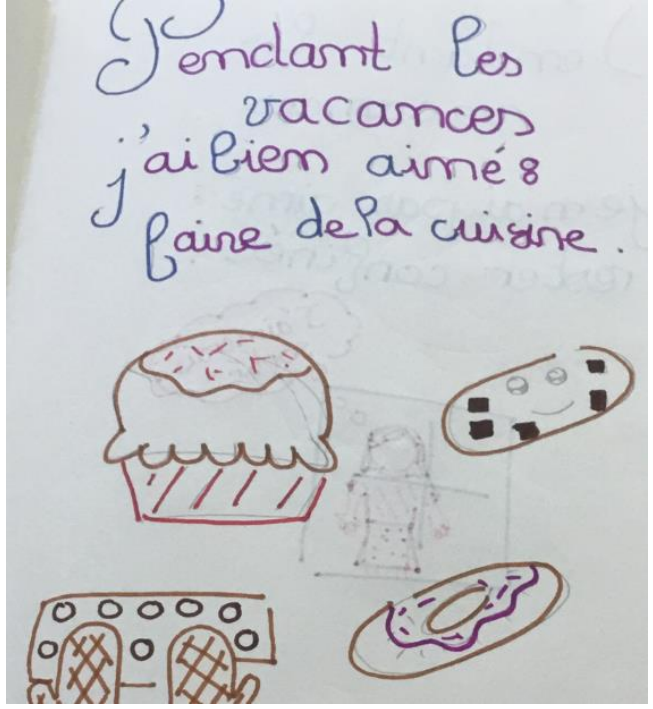 Pendant les
vacances
j'ai bien aimé :
faire de la cuisine.